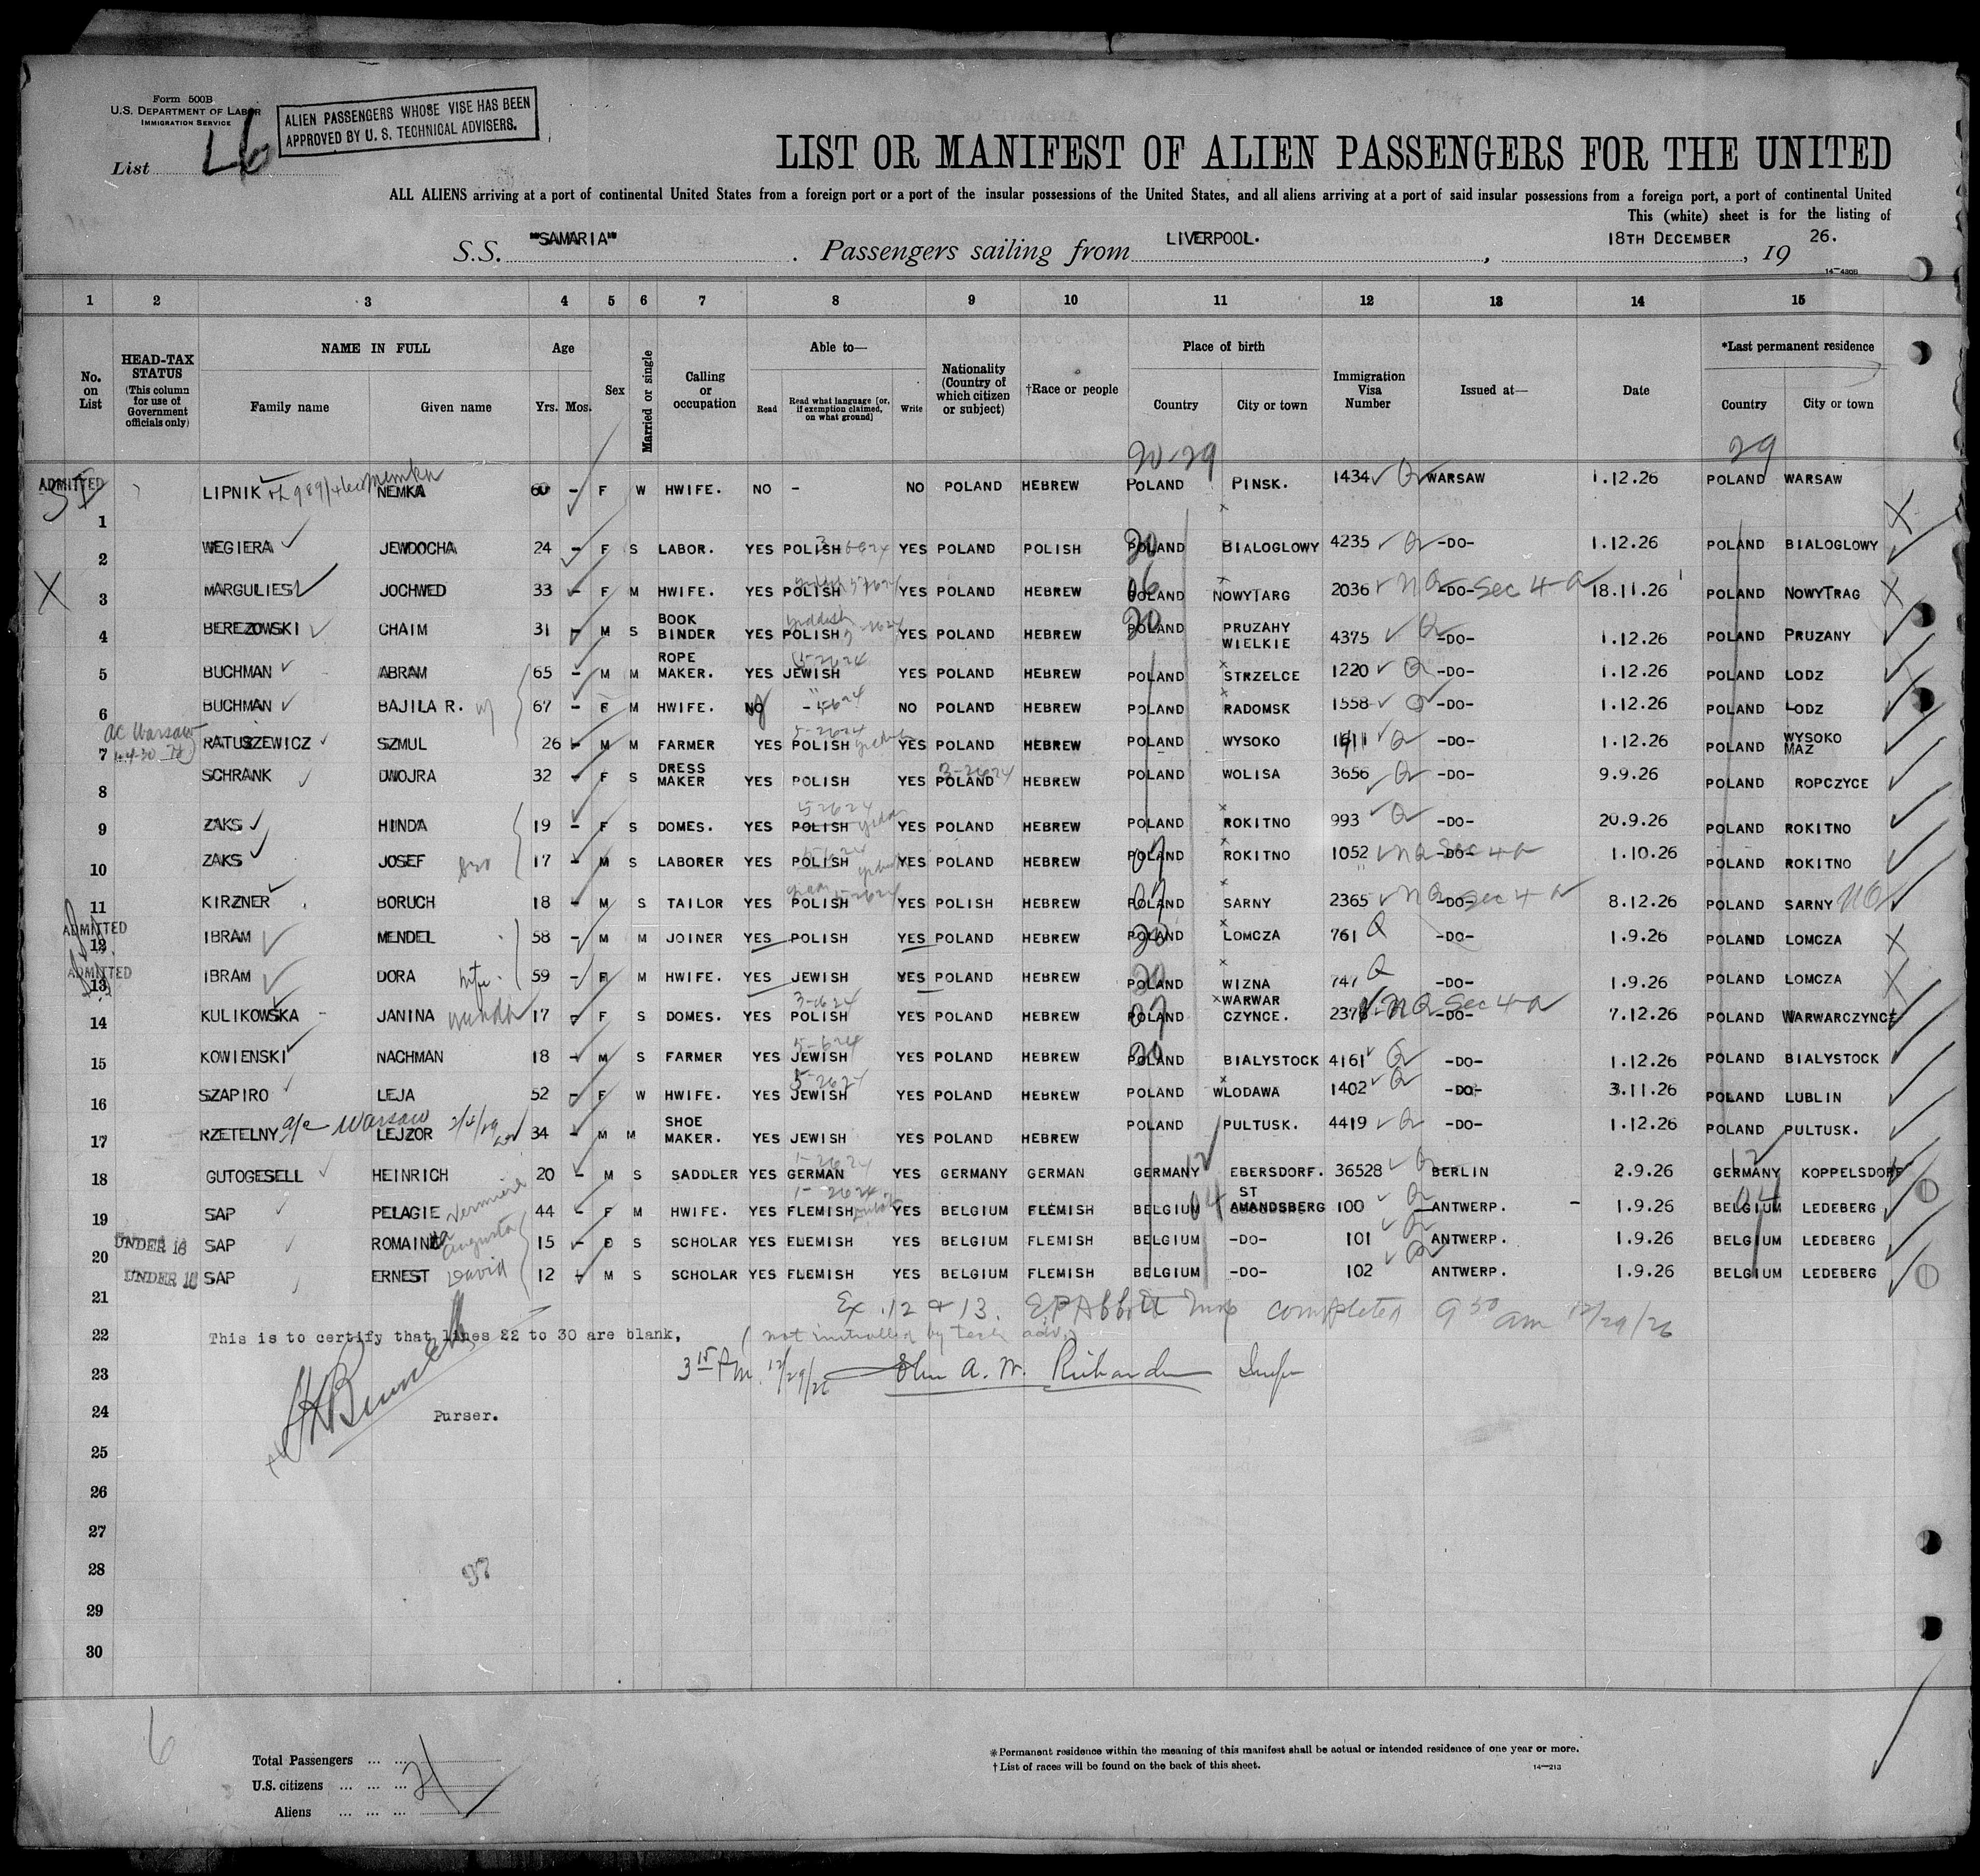 Form 500B
U.S. DEPARTMENT OF LABOR
IMMIGRATION SERVICE
ALIEN PASSENGERS WHOSE VISE HAS BEEN
APPROVED BY U. S. TECHNICAL ADVISERS.
List L6
LIST OR MANIFEST OF ALIEN PASSENGERS FOR THE UNITED
ALL ALIENS arriving at a port of continental United States from a foreign port or a port of the insular possessions of the United States, and all aliens arriving at a port of said insular possessions from a foreign port, a port of continental United
This (white) sheet is for the listing of
S.S. "SAMARIA" . Passengers sailing from LIVERPOOL. , 18TH DECEMBER , 19 26.
14—430B
1 2 3 4 5 6 7 8 9 10 11 12 13 14 15
No. on List
HEAD-TAX STATUS (This column for use of Government officials only)
NAME IN FULL Family name Given name
Age Yrs. Mos.
Sex
Married or single
Calling or occupation
Able to— Read Read what language [or, if exemption claimed, on what ground] Write
Nationality (Country of which citizen or subject)
†Race or people
Place of birth Country City or town
Immigration Visa Number
Issued at—
Date
*Last permanent residence Country City or town
20-29 29
ADMITTED 1 LIPNIK NEMKA Nemka 60 - F W HWIFE. NO - NO POLAND HEBREW POLAND PINSK. 1434 Q WARSAW 1.12.26 POLAND WARSAW
2 WEGIERA JEWDOCHA 24 - F S LABOR. YES POLISH YES POLAND POLISH POLAND 20 BIALOGLOWY 4235 Q -DO- 1.12.26 POLAND BIALOGLOWY
X 3 MARGULIES JOCHWED 33 - F M HWIFE. YES POLISH YES POLAND HEBREW POLAND 06 NOWYTARG 2036 NQ -DO- Sec 4-a 18.11.26 POLAND NOWYTRAG
4 BEREZOWSKI CHAIM 31 - M S BOOK BINDER YES POLISH Yiddish YES POLAND HEBREW POLAND 20 PRUZAHY WIELKIE 4375 Q -DO- 1.12.26 POLAND PRUZANY
5 BUCHMAN ABRAM 65 - M M ROPE MAKER. YES JEWISH 5-2624 YES POLAND HEBREW POLAND STRZELCE 1220 Q -DO- 1.12.26 POLAND LODZ
6 BUCHMAN BAJILA R. 67 - F M HWIFE. NO - NO POLAND HEBREW POLAND RADOMSK 1558 Q -DO- 1.12.26 POLAND LODZ
7 RATUSZEWICZ SZMUL 26 - M M FARMER YES POLISH 5-2624 YES POLAND HEBREW POLAND WYSOKO 1611 Q -DO- 1.12.26 POLAND WYSOKO MAZ
8 SCHRANK DWOJRA 32 - F S DRESS MAKER YES POLISH YES POLAND 3-2624 HEBREW POLAND WOLISA 3656 Q -DO- 9.9.26 POLAND ROPCZYCE
9 ZAKS HINDA 19 - F S DOMES. YES POLISH 52624 YES POLAND HEBREW POLAND ROKITNO 993 Q -DO- 20.9.26 POLAND ROKITNO
10 ZAKS JOSEF bro 17 - M S LABORER YES POLISH YES POLAND HEBREW POLAND 07 ROKITNO 1052 NQ -DO- Sec 4-a 1.10.26 POLAND ROKITNO
11 KIRZNER BORUCH 18 - M S TAILOR YES POLISH YES POLISH HEBREW POLAND 07 SARNY 2365 NQ -DO- Sec 4-a 8.12.26 POLAND SARNY
ADMITTED 12 IBRAM MENDEL 58 - M M JOINER YES POLISH YES POLAND HEBREW POLAND 20 LOMCZA 761 Q -DO- 1.9.26 POLAND LOMCZA
ADMITTED 13 IBRAM DORA wife 59 - F M HWIFE. YES JEWISH YES POLAND HEBREW POLAND 20 WIZNA 747 Q -DO- 1.9.26 POLAND LOMCZA
14 KULIKOWSKA JANINA 17 - F S DOMES. YES POLISH YES POLAND HEBREW POLAND 07 WARWAR CZYNCE. NQ -DO- Sec 4-a 7.12.26 POLAND WARWARCZYNCE
15 KOWIENSKI NACHMAN 18 - M S FARMER YES JEWISH YES POLAND HEBREW POLAND 20 BIALYSTOCK 4161 Q -DO- 1.12.26 POLAND BIALYSTOCK
16 SZAPIRO LEJA 52 - F W HWIFE. YES JEWISH 5-2624 YES POLAND HEBREW POLAND WLODAWA 1402 Q -DO- 3.11.26 POLAND LUBLIN
17 RZETELNY a/c Warsaw LEJZOR 34 - M M SHOE MAKER. YES JEWISH YES POLAND HEBREW POLAND PULTUSK. 4419 Q -DO- 1.12.26 POLAND PULTUSK.
18 GUTOGESELL HEINRICH 20 - M S SADDLER YES GERMAN 1-2624 YES GERMANY GERMAN GERMANY 12 EBERSDORF. 36528 Q BERLIN 2.9.26 GERMANY 12 KOPPELSDORF
19 SAP PELAGIE 44 - F M HWIFE. YES FLEMISH 1-2624 YES BELGIUM FLEMISH BELGIUM 04 ST AMANDSBERG 100 Q ANTWERP. - 1.9.26 BELGIUM 04 LEDEBERG
UNDER 16 20 SAP ROMAINE Augusta 15 - S SCHOLAR YES FLEMISH YES BELGIUM FLEMISH BELGIUM -DO- 101 Q ANTWERP. 1.9.26 BELGIUM LEDEBERG
UNDER 16 SAP ERNEST David 12 - M S SCHOLAR YES FLEMISH YES BELGIUM FLEMISH BELGIUM -DO- 102 Q ANTWERP. 1.9.26 BELGIUM LEDEBERG
21 Ex. 12 & 13. E.P. Abbott Insp completed 9 50 am 12/29/26
22 This is to certify that lines 22 to 30 are blank. (not initialled by tech. adv.)
23 3 15 PM 12/29/26 John A. W. Richardson Insp
24 Purser.
25
26
27
28 97
29
30
6
Total Passengers ... ... 21
U.S. citizens ... ... ...
Aliens ... ... ...
*Permanent residence within the meaning of this manifest shall be actual or intended residence of one year or more.
† List of races will be found on the back of this sheet.
14—213